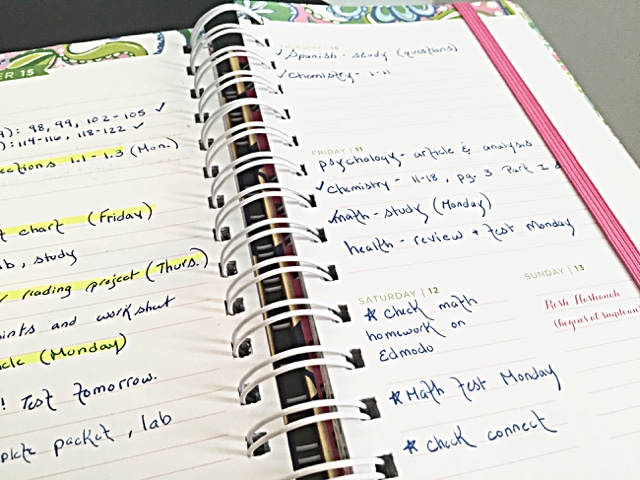 ER 15
): 98, 99, 102-105 ✓
): 114-116, 118-122 ✓
ections 1.1-1.3 (Mon.)
t chart (Friday)
ab, study
reading project (Thurs.)
ints and worksheet
(Monday)
! Test tomorrow.
plete packet, lab
10
✓ Spanish - study (questions)
✓ Chemistry -
FRIDAY | 11
psychology - article & analysis
✓ Chemistry - 11-18, pg. 3 Part I &
✓ math - study (Monday)
health - review + test Monday
SATURDAY | 12
★ check math
homework on
Edmodo
★ Math Test Monday
★ check connect
SUNDAY | 13
Rosh Hashanah
(begins at sundown)